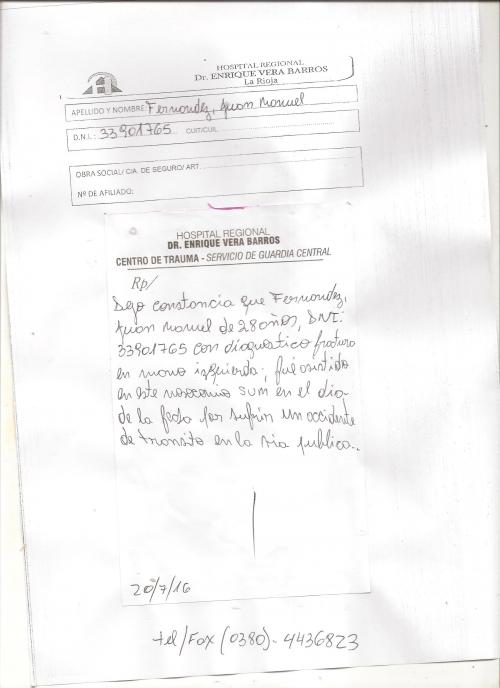 HOSPITAL REGIONAL
Dr. ENRIQUE VERA BARROS
La Rioja
APELLIDO Y NOMBRE: Fernandez, Juan Manuel
D.N.I.: 33901765 CUIT/CUIL:
OBRA SOCIAL/ CIA. DE SEGURO/ ART.
Nº DE AFILIADO:
HOSPITAL REGIONAL
DR. ENRIQUE VERA BARROS
CENTRO DE TRAUMA - SERVICIO DE GUARDIA CENTRAL
Rp/
Dejo constancia que Fernandez,
Juan Manuel de 28 años, DNI:
33901765 con diagnostico fractura
en mano izquierda; fue asistido
en este nosocomio sum en el dia
de la fecha por sufrir un accidente
de transito en la via publica..
20/7/16
tel/Fax (0380) - 4436823